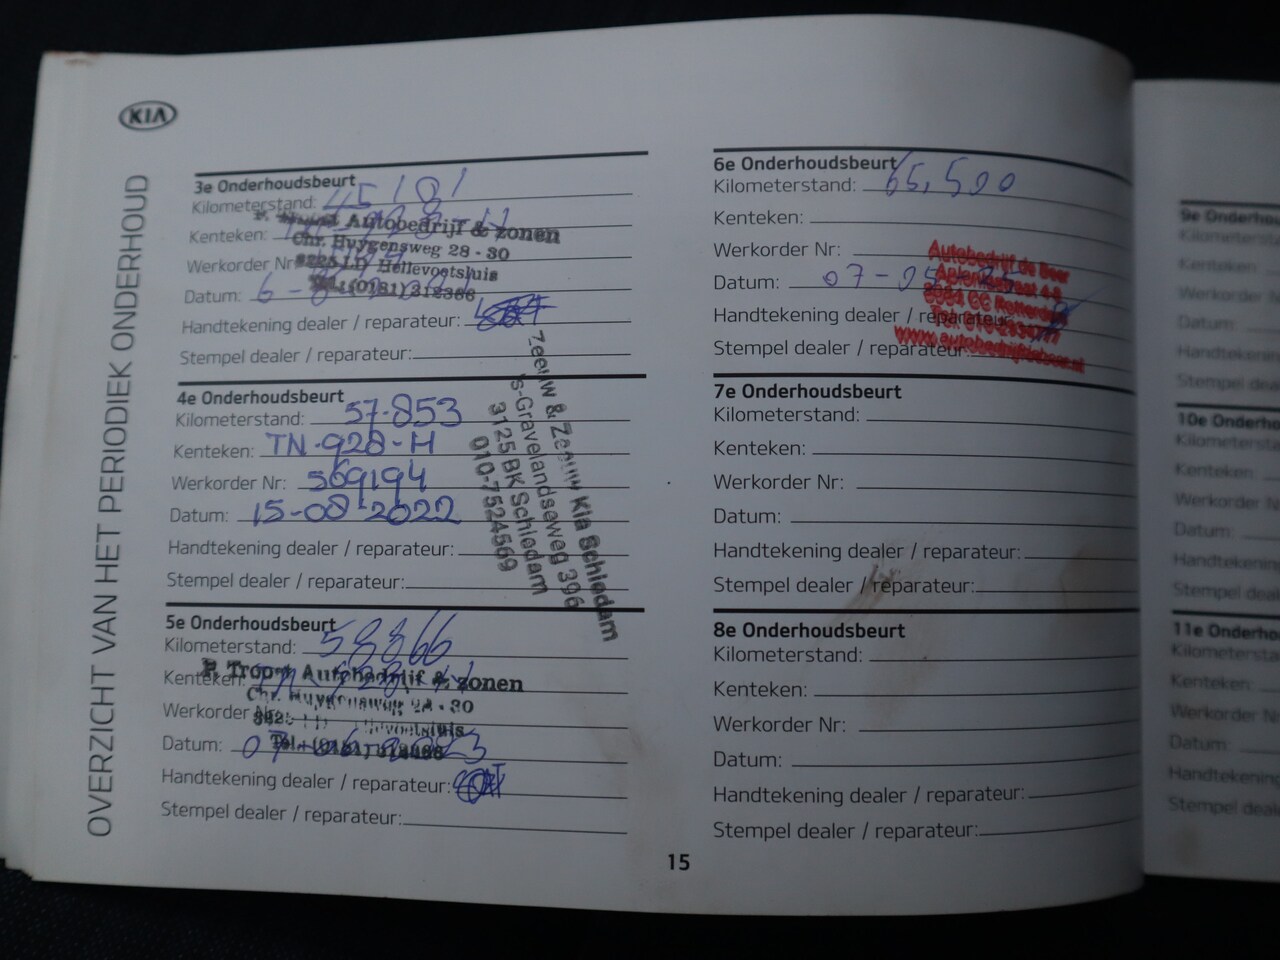 KIA
OVERZICHT VAN HET PERIODIEK ONDERHOUD
3e Onderhoudsbeurt
Kilometerstand: 45181
Kenteken:
Werkorder Nr:
Datum: 6-
Handtekening dealer / reparateur:
Stempel dealer / reparateur:
Autobedrijf & zonen
Chr. Huygensweg 28 - 30
Hellevoetsluis
4e Onderhoudsbeurt
Kilometerstand: 57.853
Kenteken: TN-928-H
Werkorder Nr: 569194
Datum: 15-08-2022
Handtekening dealer / reparateur:
Stempel dealer / reparateur:
Zeeuw & Zeeuw Kia Schiedam
's-Gravelandseweg 396
3125BK Schiedam
010-7524569
5e Onderhoudsbeurt
Kilometerstand: 58866
Kenteken:
Werkorder Nr:
Datum:
Handtekening dealer / reparateur:
Stempel dealer / reparateur:
Autobedrijf & zonen
Chr. Huygensweg 28 - 30
6e Onderhoudsbeurt
Kilometerstand: 65,500
Kenteken:
Werkorder Nr:
Datum: 07-05-
Handtekening dealer / reparateur:
Stempel dealer / reparateur:
Autobedrijf de Beer
Rotterdam
www.autobedrijfdebeer.nl
7e Onderhoudsbeurt
Kilometerstand:
Kenteken:
Werkorder Nr:
Datum:
Handtekening dealer / reparateur:
Stempel dealer / reparateur:
8e Onderhoudsbeurt
Kilometerstand:
Kenteken:
Werkorder Nr:
Datum:
Handtekening dealer / reparateur:
Stempel dealer / reparateur:
15
9e Onderhou
Kilometersta
Kenteken:
Werkorder N
Datum:
Handtekene
Stempel dea
10e Onderho
Kilometersta
Kenteken:
Werkorder N
Datum:
Handtekening
Stempel deal
11e Onderho
Kilometersta
Kenteken:
Werkorder N
Datum:
Handtekening
Stempel deal